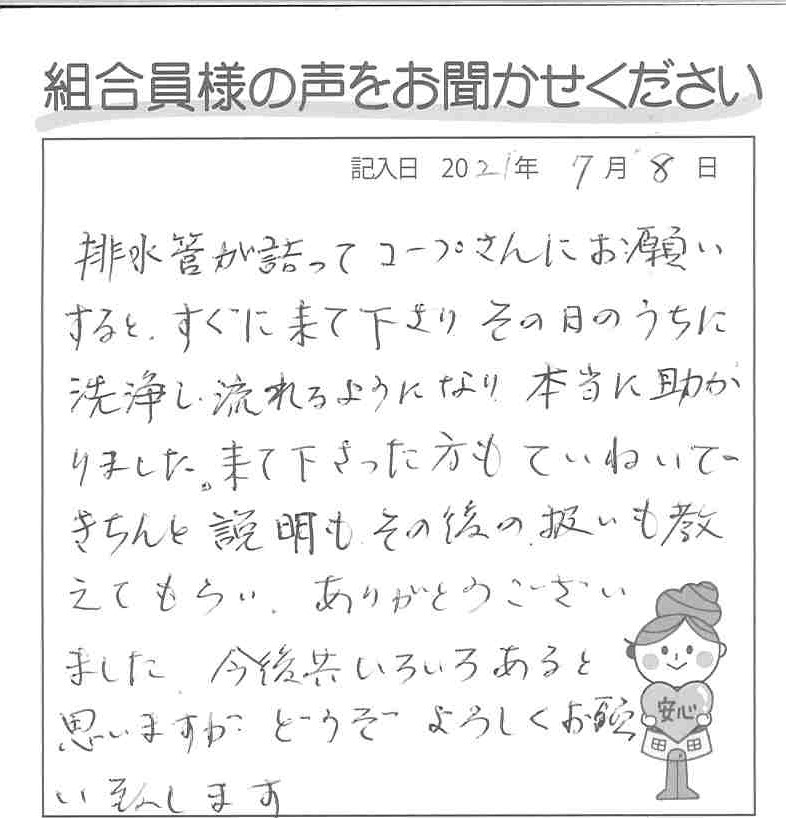 組合員様の声をお聞かせください
記入日 2021年 7月 8日
排水管が詰ってコープさんにお願い
すると、すぐに来て下さりその日のうちに
洗浄し、流れるようになり本当に助か
りました。来て下さった方もていねいで
きちんと説明も、その後の扱いも教
えてもらい、ありがとうござい
ました。今後共いろいろあると
思いますが どうぞ よろしくお願
い致します
安心